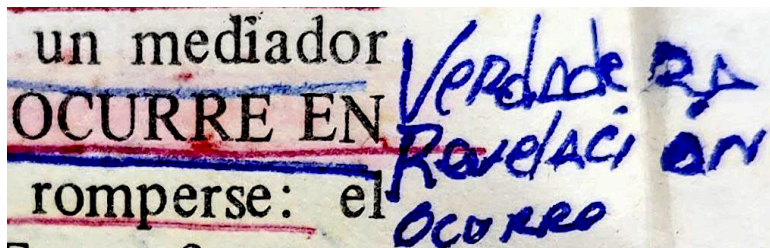 un mediador
OCURRE EN
romperse: el
VerdadeRA
RevelaCiÓN
OCURRO